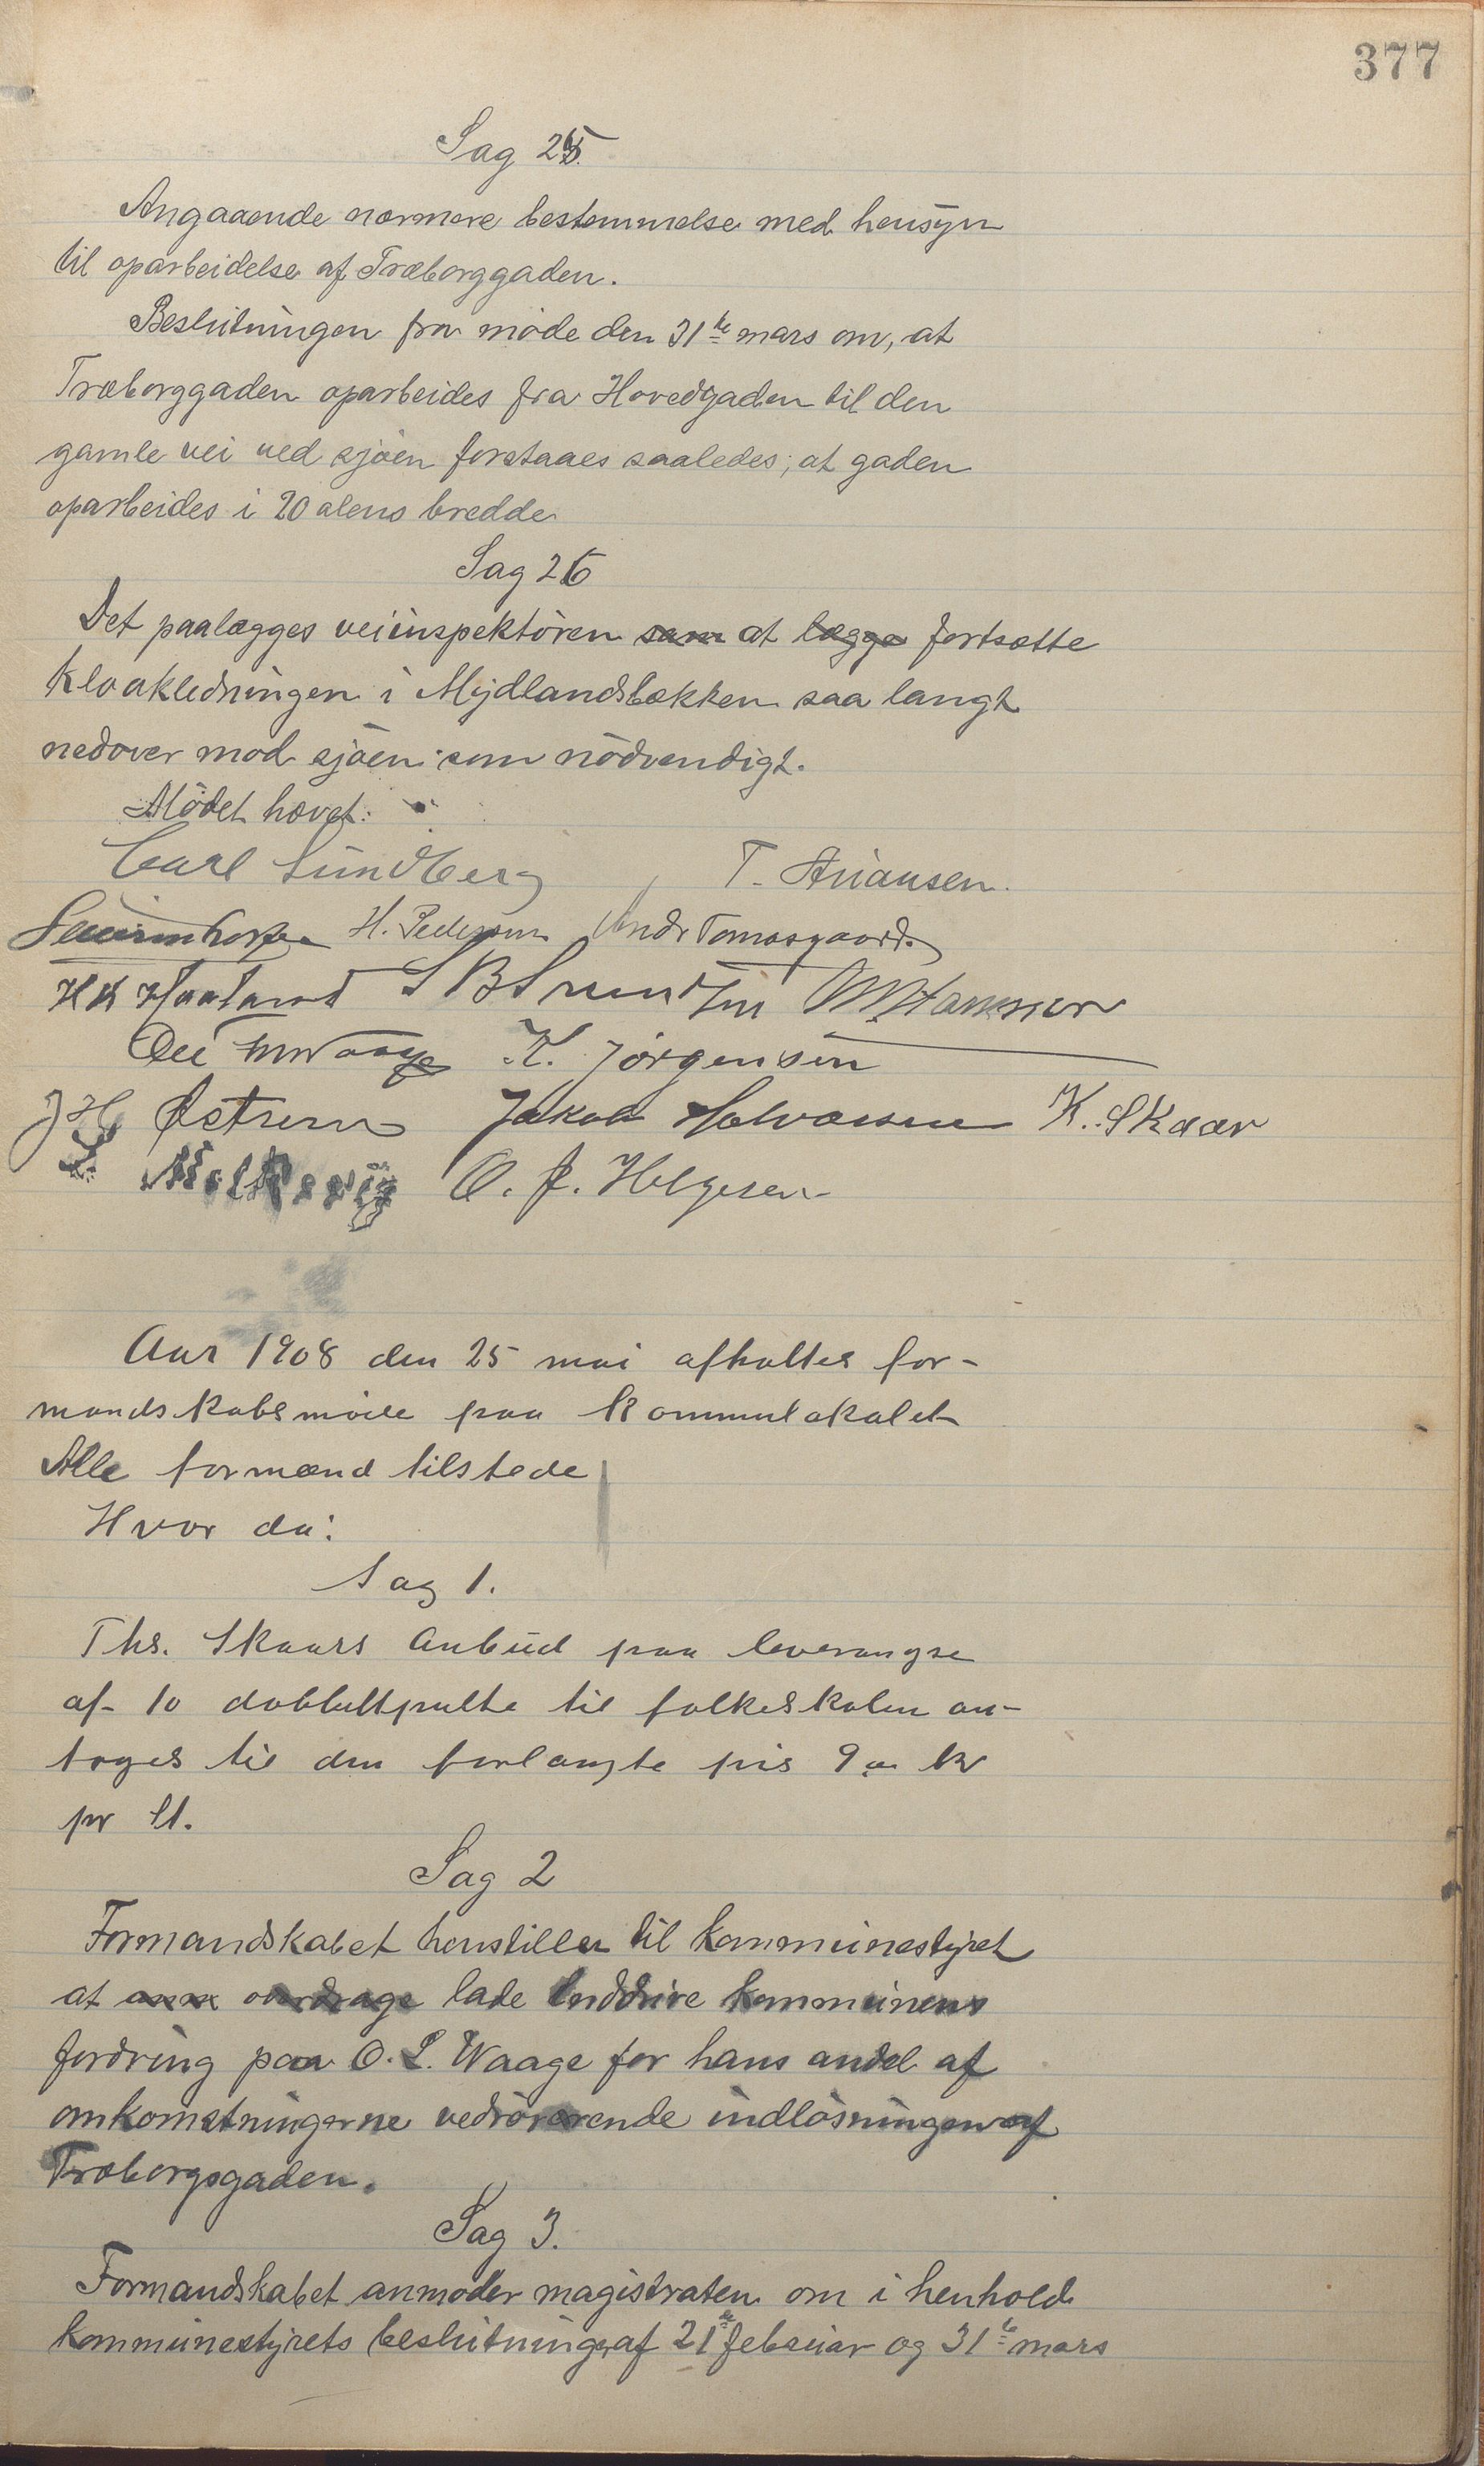 377
Sag 25.
Angaaende nærmere bestemmelse med hensyn
til oparbeidelse af Træborggaden.
Beslutningen fra møde den 31te mars om, at
Træborggaden oparbeides fra Hovedgaden til den
gamle vei ved sjøen forstaaes saaledes, at gaden
oparbeides i 20 alens bredde
Sag 26
Det paalægges veiinspektøren som at lægge fortsætte
kloakledningen i Mydlandsbækken saa langt
nedover mod sjøen som nødvendigt.
Mødet hævet.
Carl Sundberg T. Ariansen.
H. Pedersen Andr Tomasgaard.
HK Haaland S B Hammer
K. Jørgensen
JH Østrem Jakob K. Skaar
O. J. Helgesen
Aar 1908 den 25 mai afholtes for-
mandskabsmøde paa kommulokalet
Alle formænd tilstede
Hvor da:
Sag 1.
Ths. Skaars Anbud paa leverangse
af 10 dobbeltpulte til folkeskolen an-
toges til den forlangte pris 9 kr
pr st.
Sag 2
Formandskabet henstiller til kommunestyret
at anm overdrage lade inddrive kommunens
fordring paa O. L. Waage for hans andel af
omkomstningerne vedrørende indløsningen af
Træborgsgaden.
Sag 3.
Formandskabet anmoder magistraten om i henhold
kommunestyrets beslutning af 21te februar og 31te mars